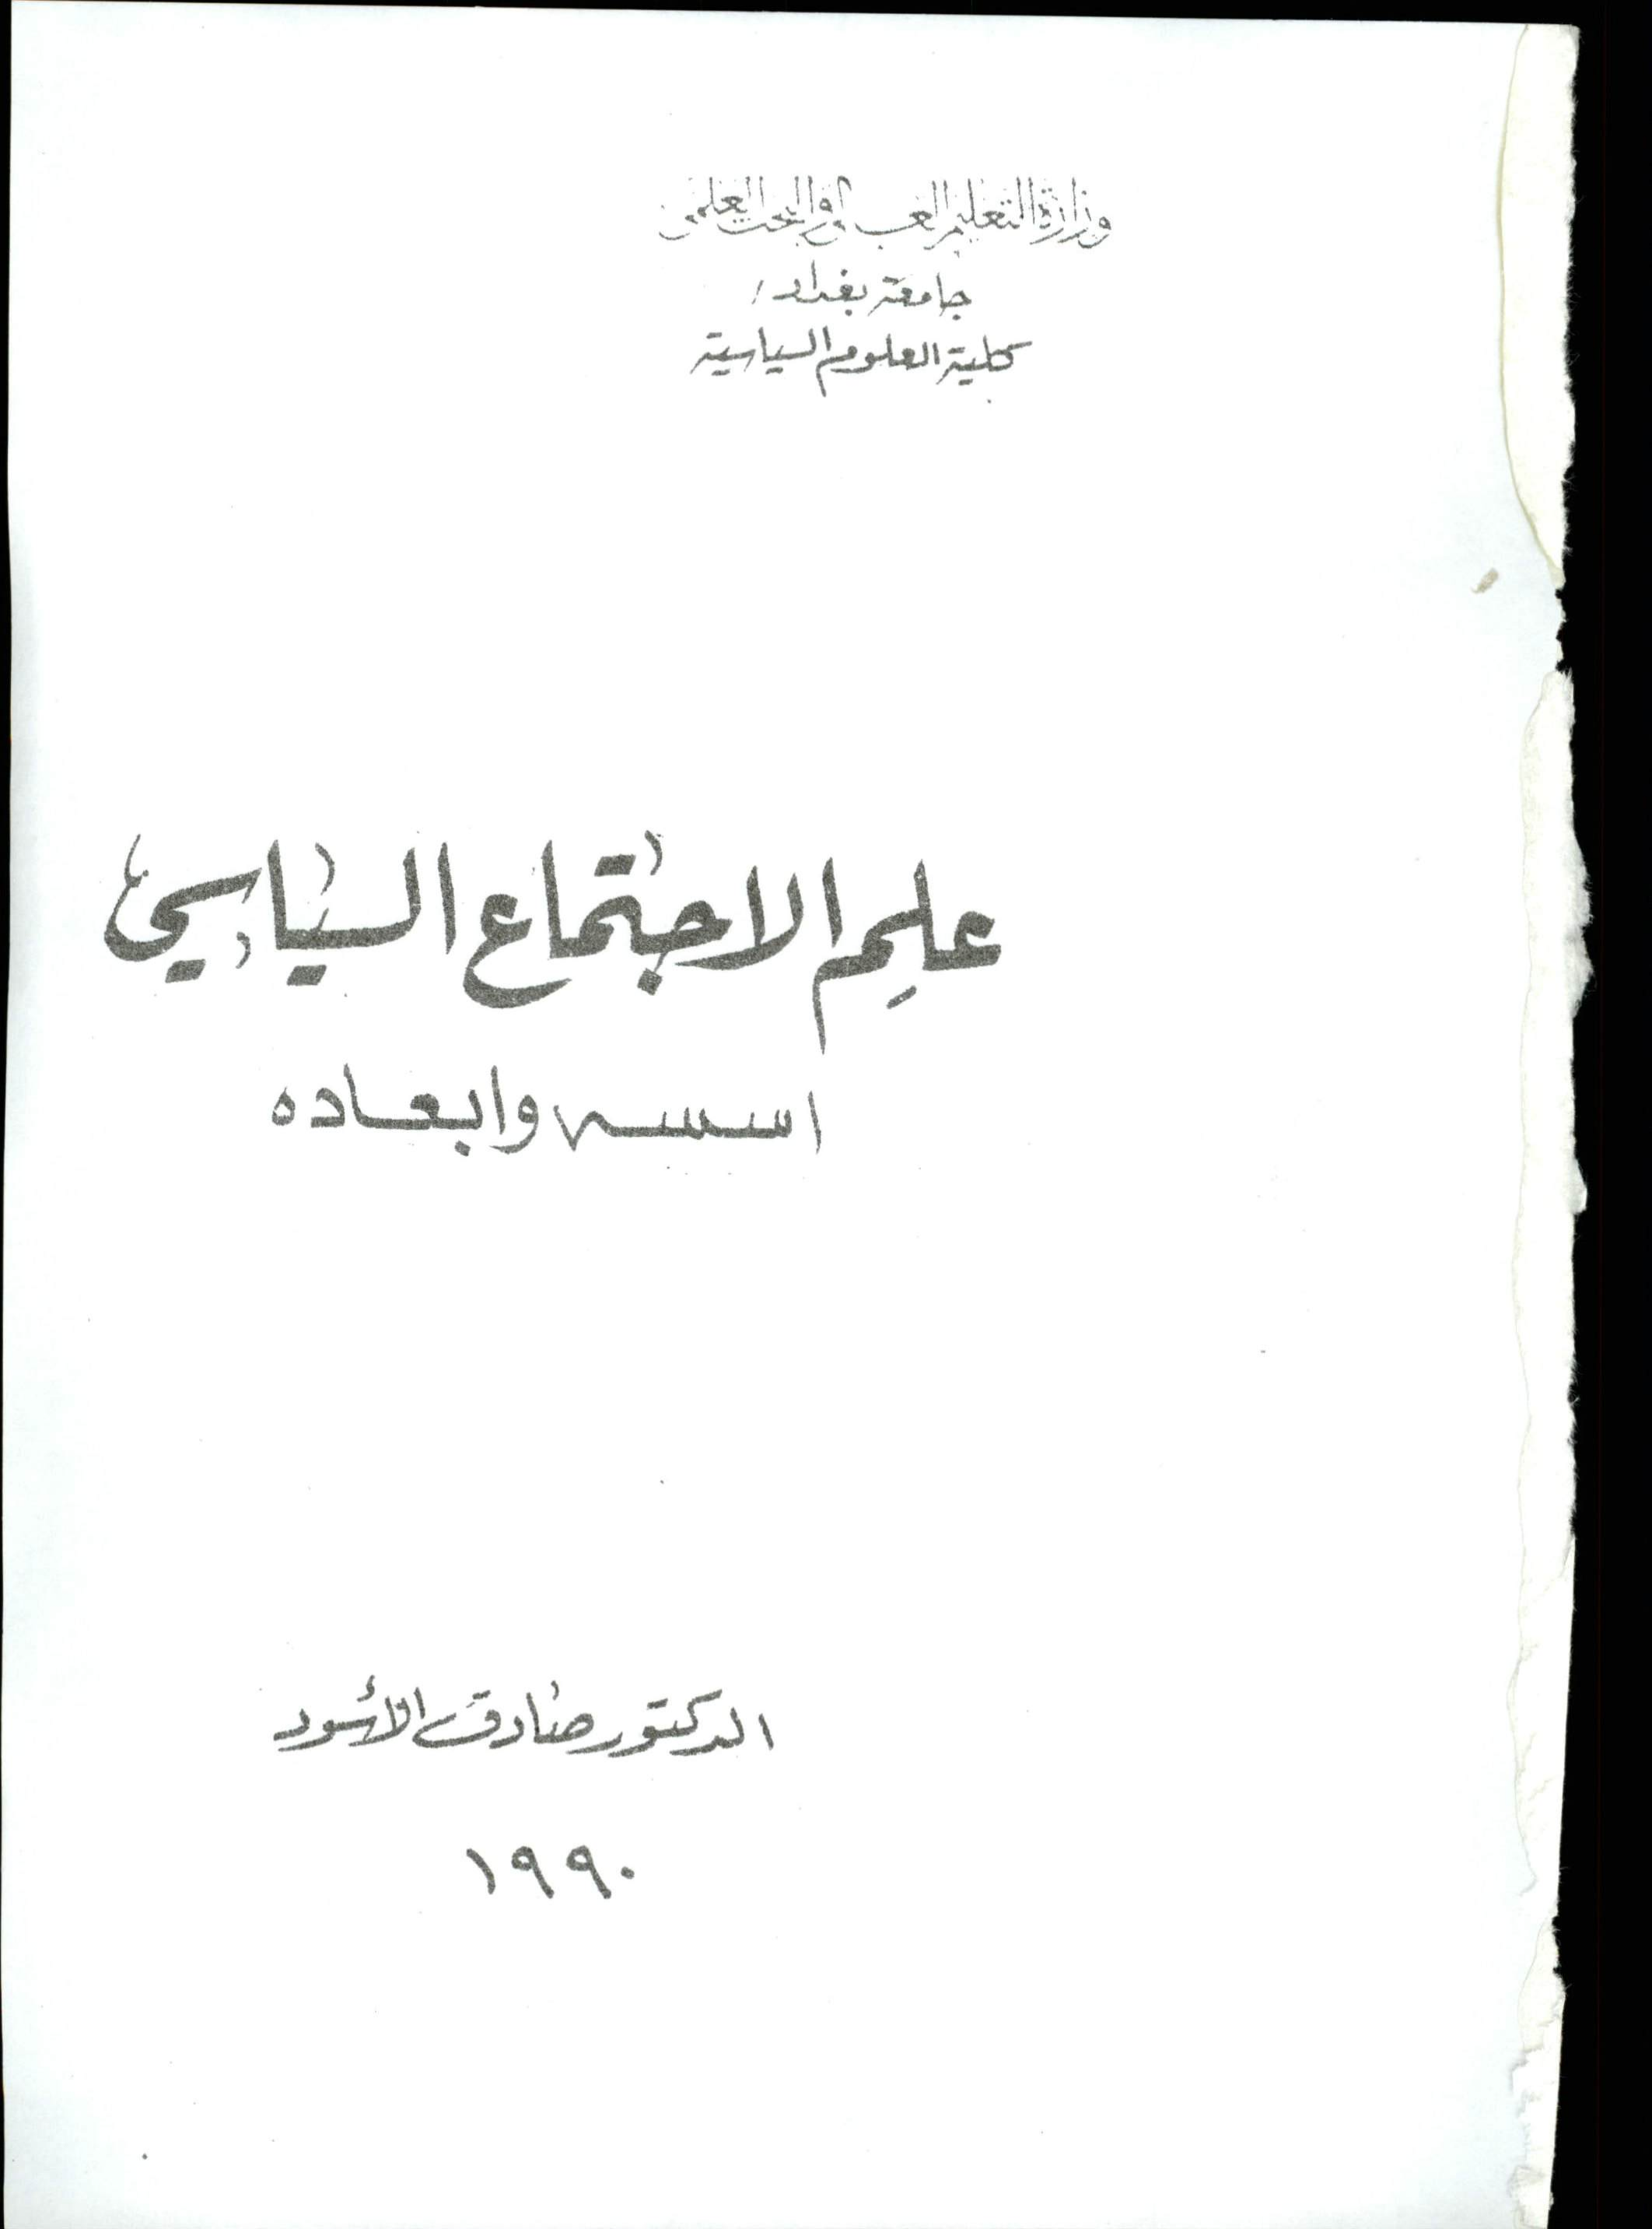 وزارة التعليم العالي والبحث العلمي
جامعة بغداد /
كلية العلوم السياسية
علم الاجتماع السياسي
اسسه وابعاده
الدكتور صادق الأسود
١٩٩٠